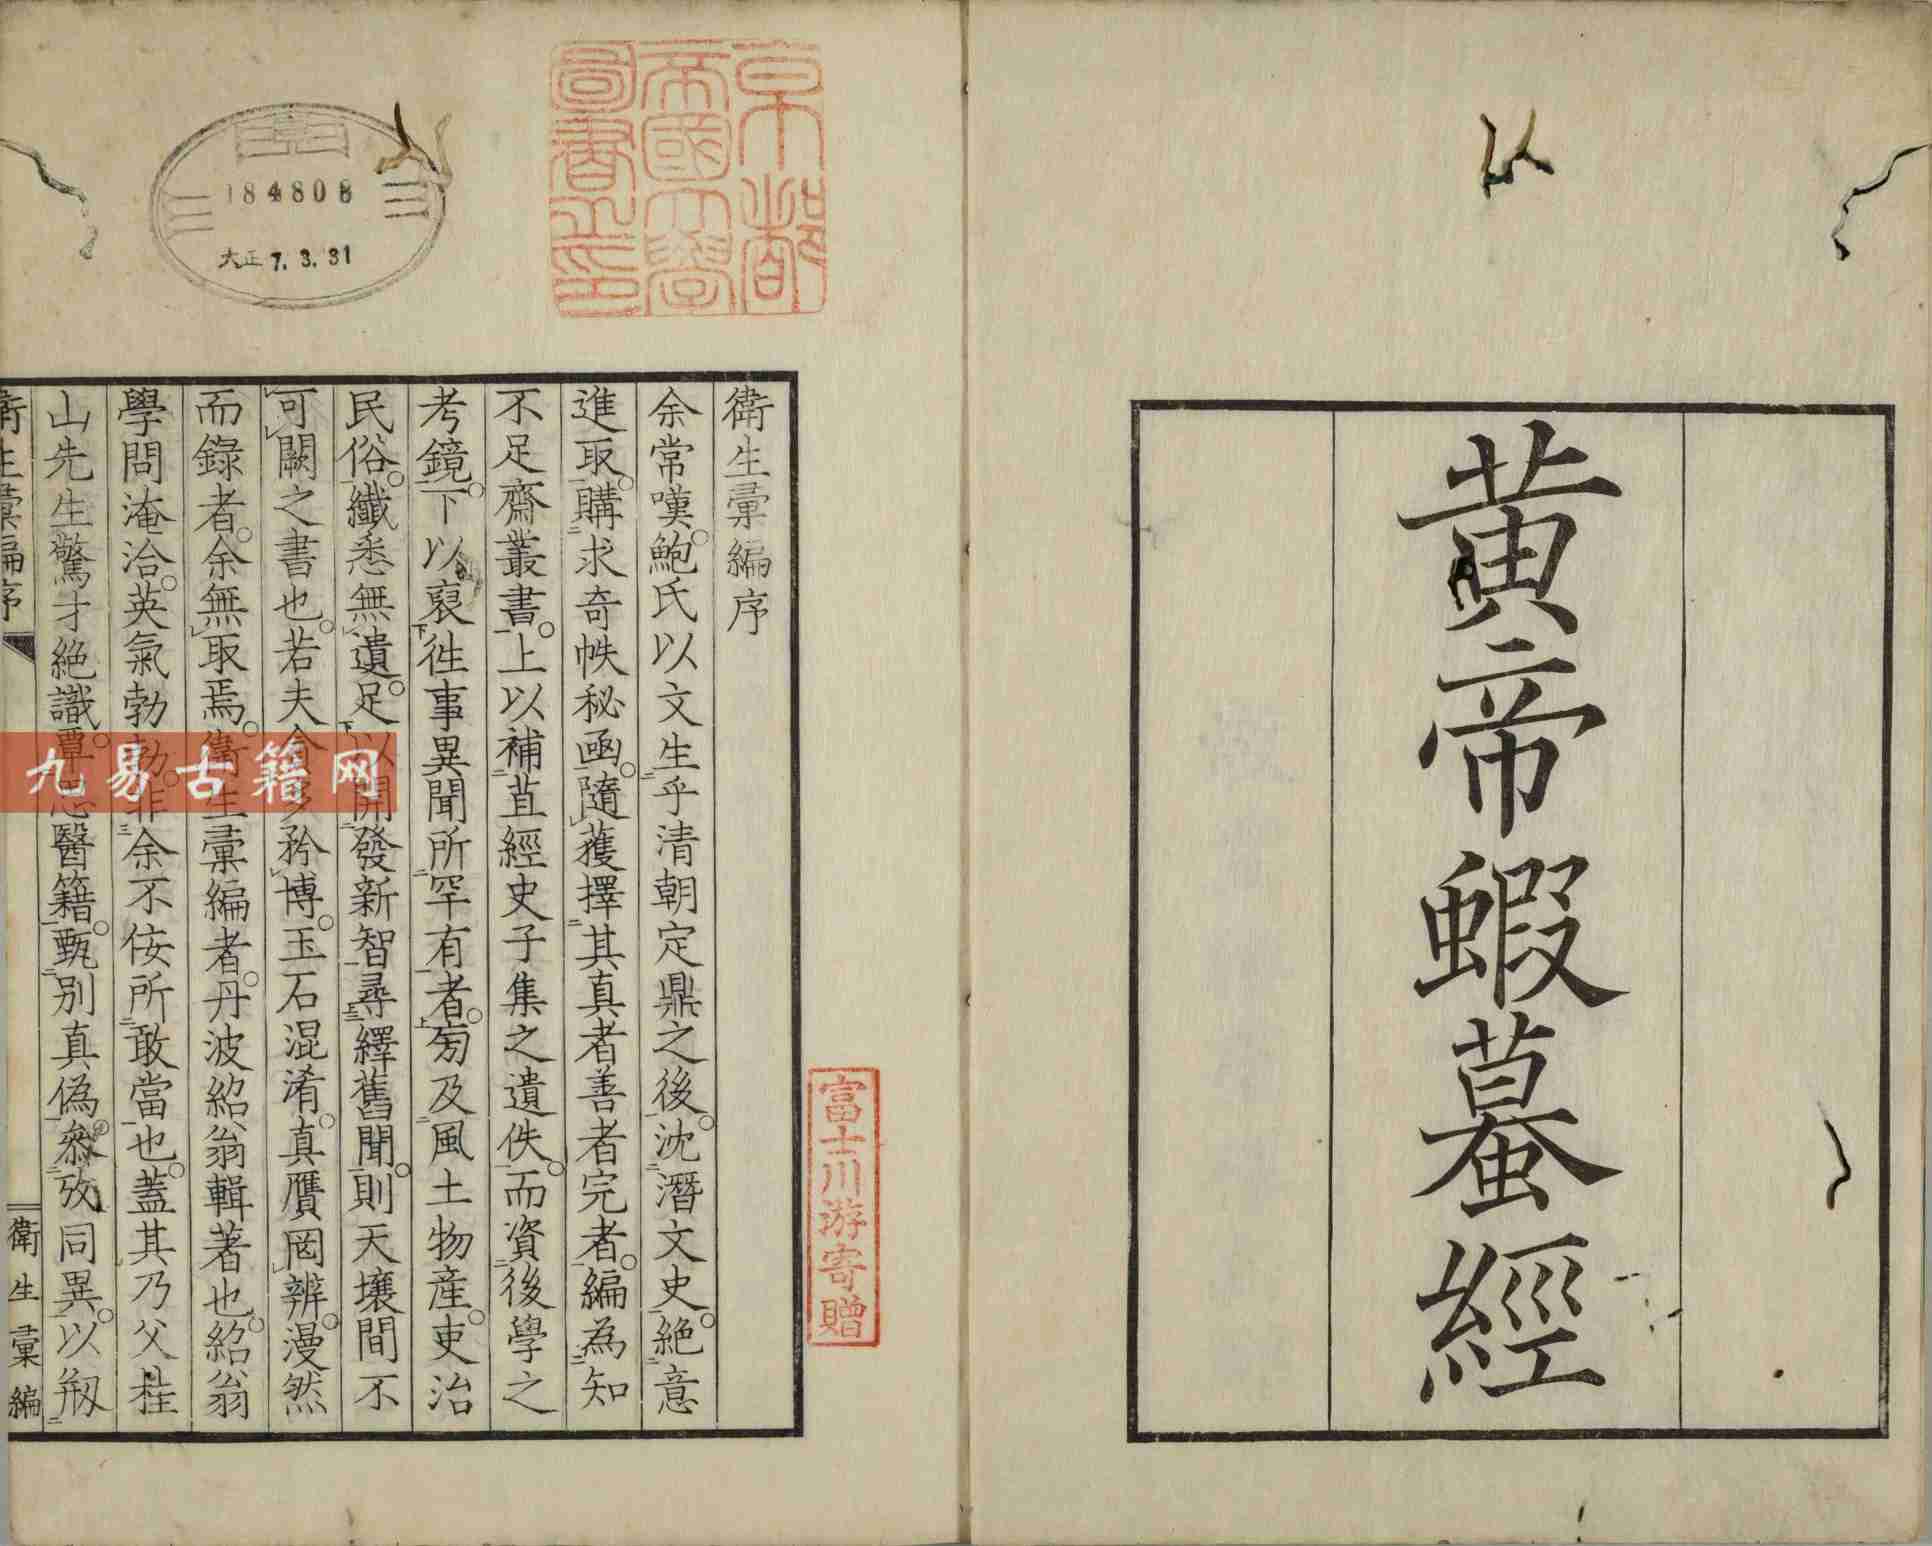 黃帝蝦蟇經
京都
帝國大學
圖書之印
184808
大正 7.3.31
富士川游寄贈
衛生彙編序
余常嘆鮑氏以文生乎清朝定鼎之後沈潛文史絶意
進取購求奇帙秘函隨獲擇其真者善者完者編為知
不足齋叢書上以補苴經史子集之遺佚而資後學之
考鏡下以裒徃事異聞所罕有者旁及風土物產吏治
民俗纖悉無遺足以開發新智尋繹舊聞則天壤間不
可闕之書也若夫貪多矜博玉石混淆真贋罔辨漫然
而錄者余無取焉衛生彙編者丹波紹翁輯著也紹翁
學問淹洽英氣勃勃非余不佞所敢當也蓋其乃父桂
山先生驚才絶識覃思醫籍甄別真偽叅攷同異以剏
衛生彙編序
衛生彙編
九易古籍网